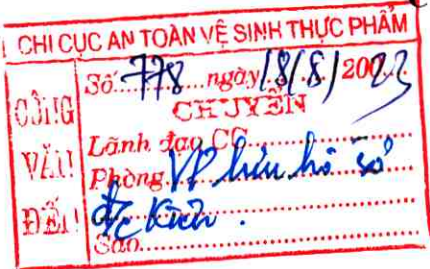 CHI CỤC AN TOÀN VỆ SINH THỰC PHẨM
CÔNG VĂN ĐẾN
Số 778 ngày 18/8/2023
CHUYỂN
Lãnh đạo CC
Phòng VP lưu hồ sơ
đ/c Kiên.
Sao